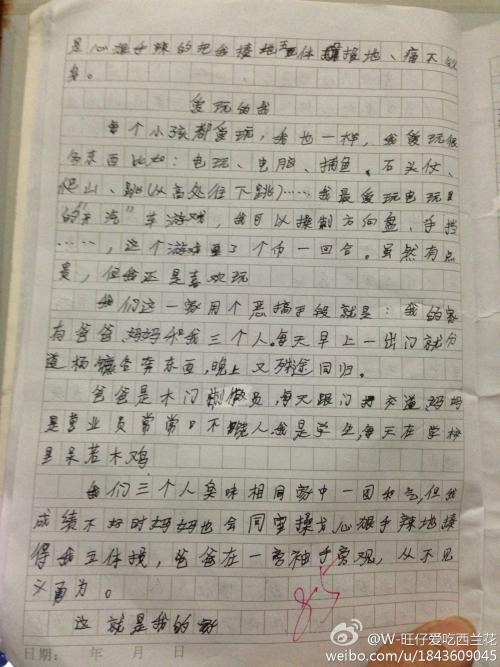 是心狠手辣的把我揍地五体投地、痛不欲
生。
爱玩的我
每个小孩都爱玩,我也一样,我爱玩很
多东西比如:电玩、电脑、捕鱼、石头仗、
爬山、跳(从高处往下跳)……我最爱玩电玩里
的"汽车游戏,我可以操制方向盘、手挡
……,这个游戏要3个币一回合。虽然有点
贵,但我还是喜欢玩
我们这一家用个恶搞手段就是:我的家
有爸爸妈妈和我三个人。每天早上一出门就分
道扬镳各奔东西,晚上又殊途同归。
爸爸是木门制做员,每天跟门打交道妈妈
是营业员常常口不饶人我是学生,每天在学校
里呆若木鸡
我们三个人臭味相同家中一团和气,但我
成绩不好时妈妈也会同室操戈心狠手辣地揍
得我五体投,爸爸在一旁袖手旁观,从不见
义勇为。
这就是我的家
85
日期: 年 月 日
@W-旺仔爱吃西兰花
weibo.com/u/1843609045